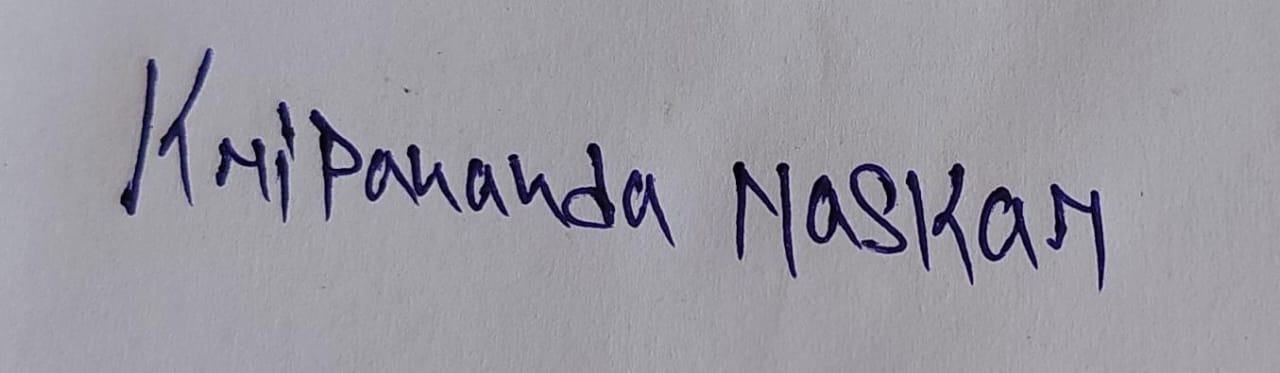 Kripananda Naskar